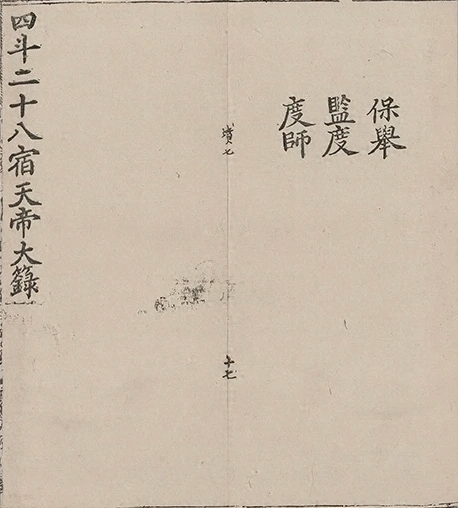 保舉
監度
度師
墳七
十七
四斗二十八宿天帝大籙